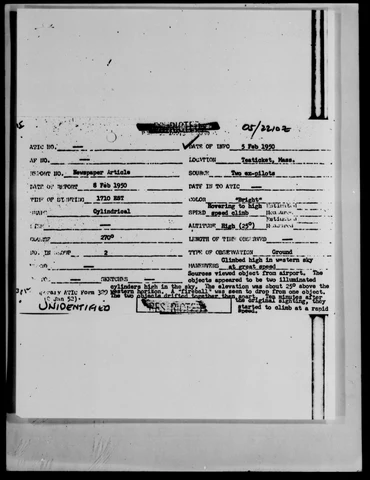 RESTRICTED
05/2210Z
ATIC NO. — DATE OF INFO 5 Feb 1950
AF NO. — LOCATION Teaticket, Mass.
REPORT NO. Newspaper Article SOURCE Two ex-pilots
DATE OF REPORT 6 Feb 1950 DATE IN TO ATIC —
TIME OF SIGHTING 1710 EST COLOR "Bright"
SHAPE Cylindrical SPEED Hovering to high speed climb
SIZE — ALTITUDE High (25°)
COURSE 270° LENGTH OF TIME OBSERVED —
NO. IN GROUP 2 TYPE OF OBSERVATION Ground
— MANEUVERS Climbed high in western sky at great speed
SKETCHES
Sources viewed object from airport. The
objects appeared to be two illuminated
cylinders high in the sky. The elevation was about 25° above the
western horizon. A "fireball" was seen to drop from one object.
The two objects drifted together then apart. Ten minutes after
the original sighting, they
started to climb at a rapid
speed.
Temporary ATIC Form 329
(2 Jan 52)
UNIDENTIFIED
RESTRICTED